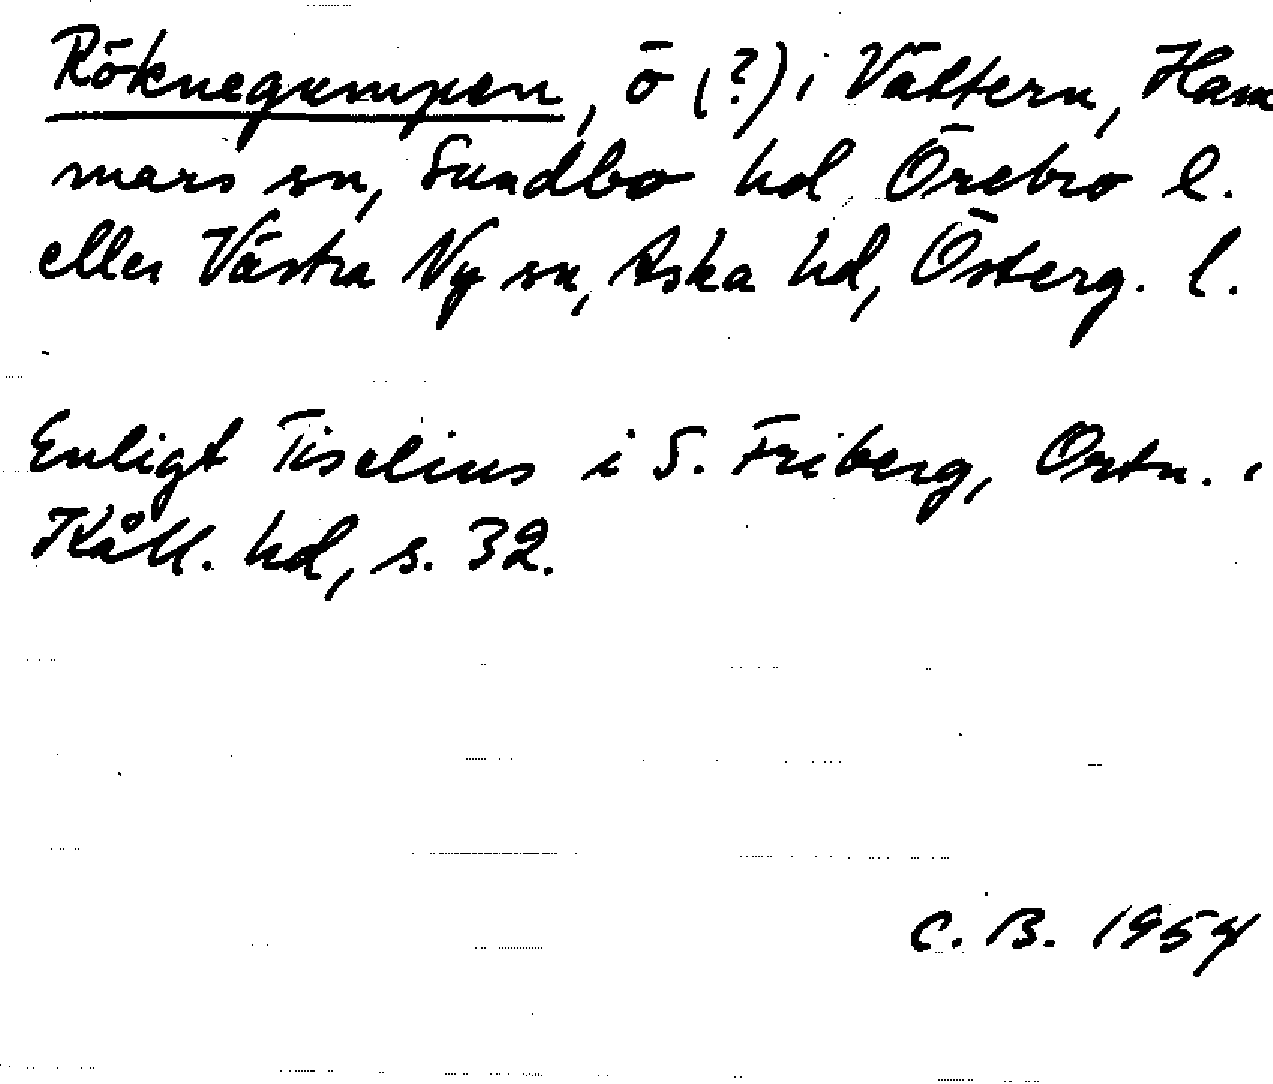 Röknegumpen, ö (?) i Vättern, Ham
mars sn, Sundbo hd, Örebro l.
eller Västra Ny sn, Aska hd, Österg. l.
Enligt Tiselius i S. Friberg, Ortn. i
Kåll. hd, s. 32.
C. B. 1954